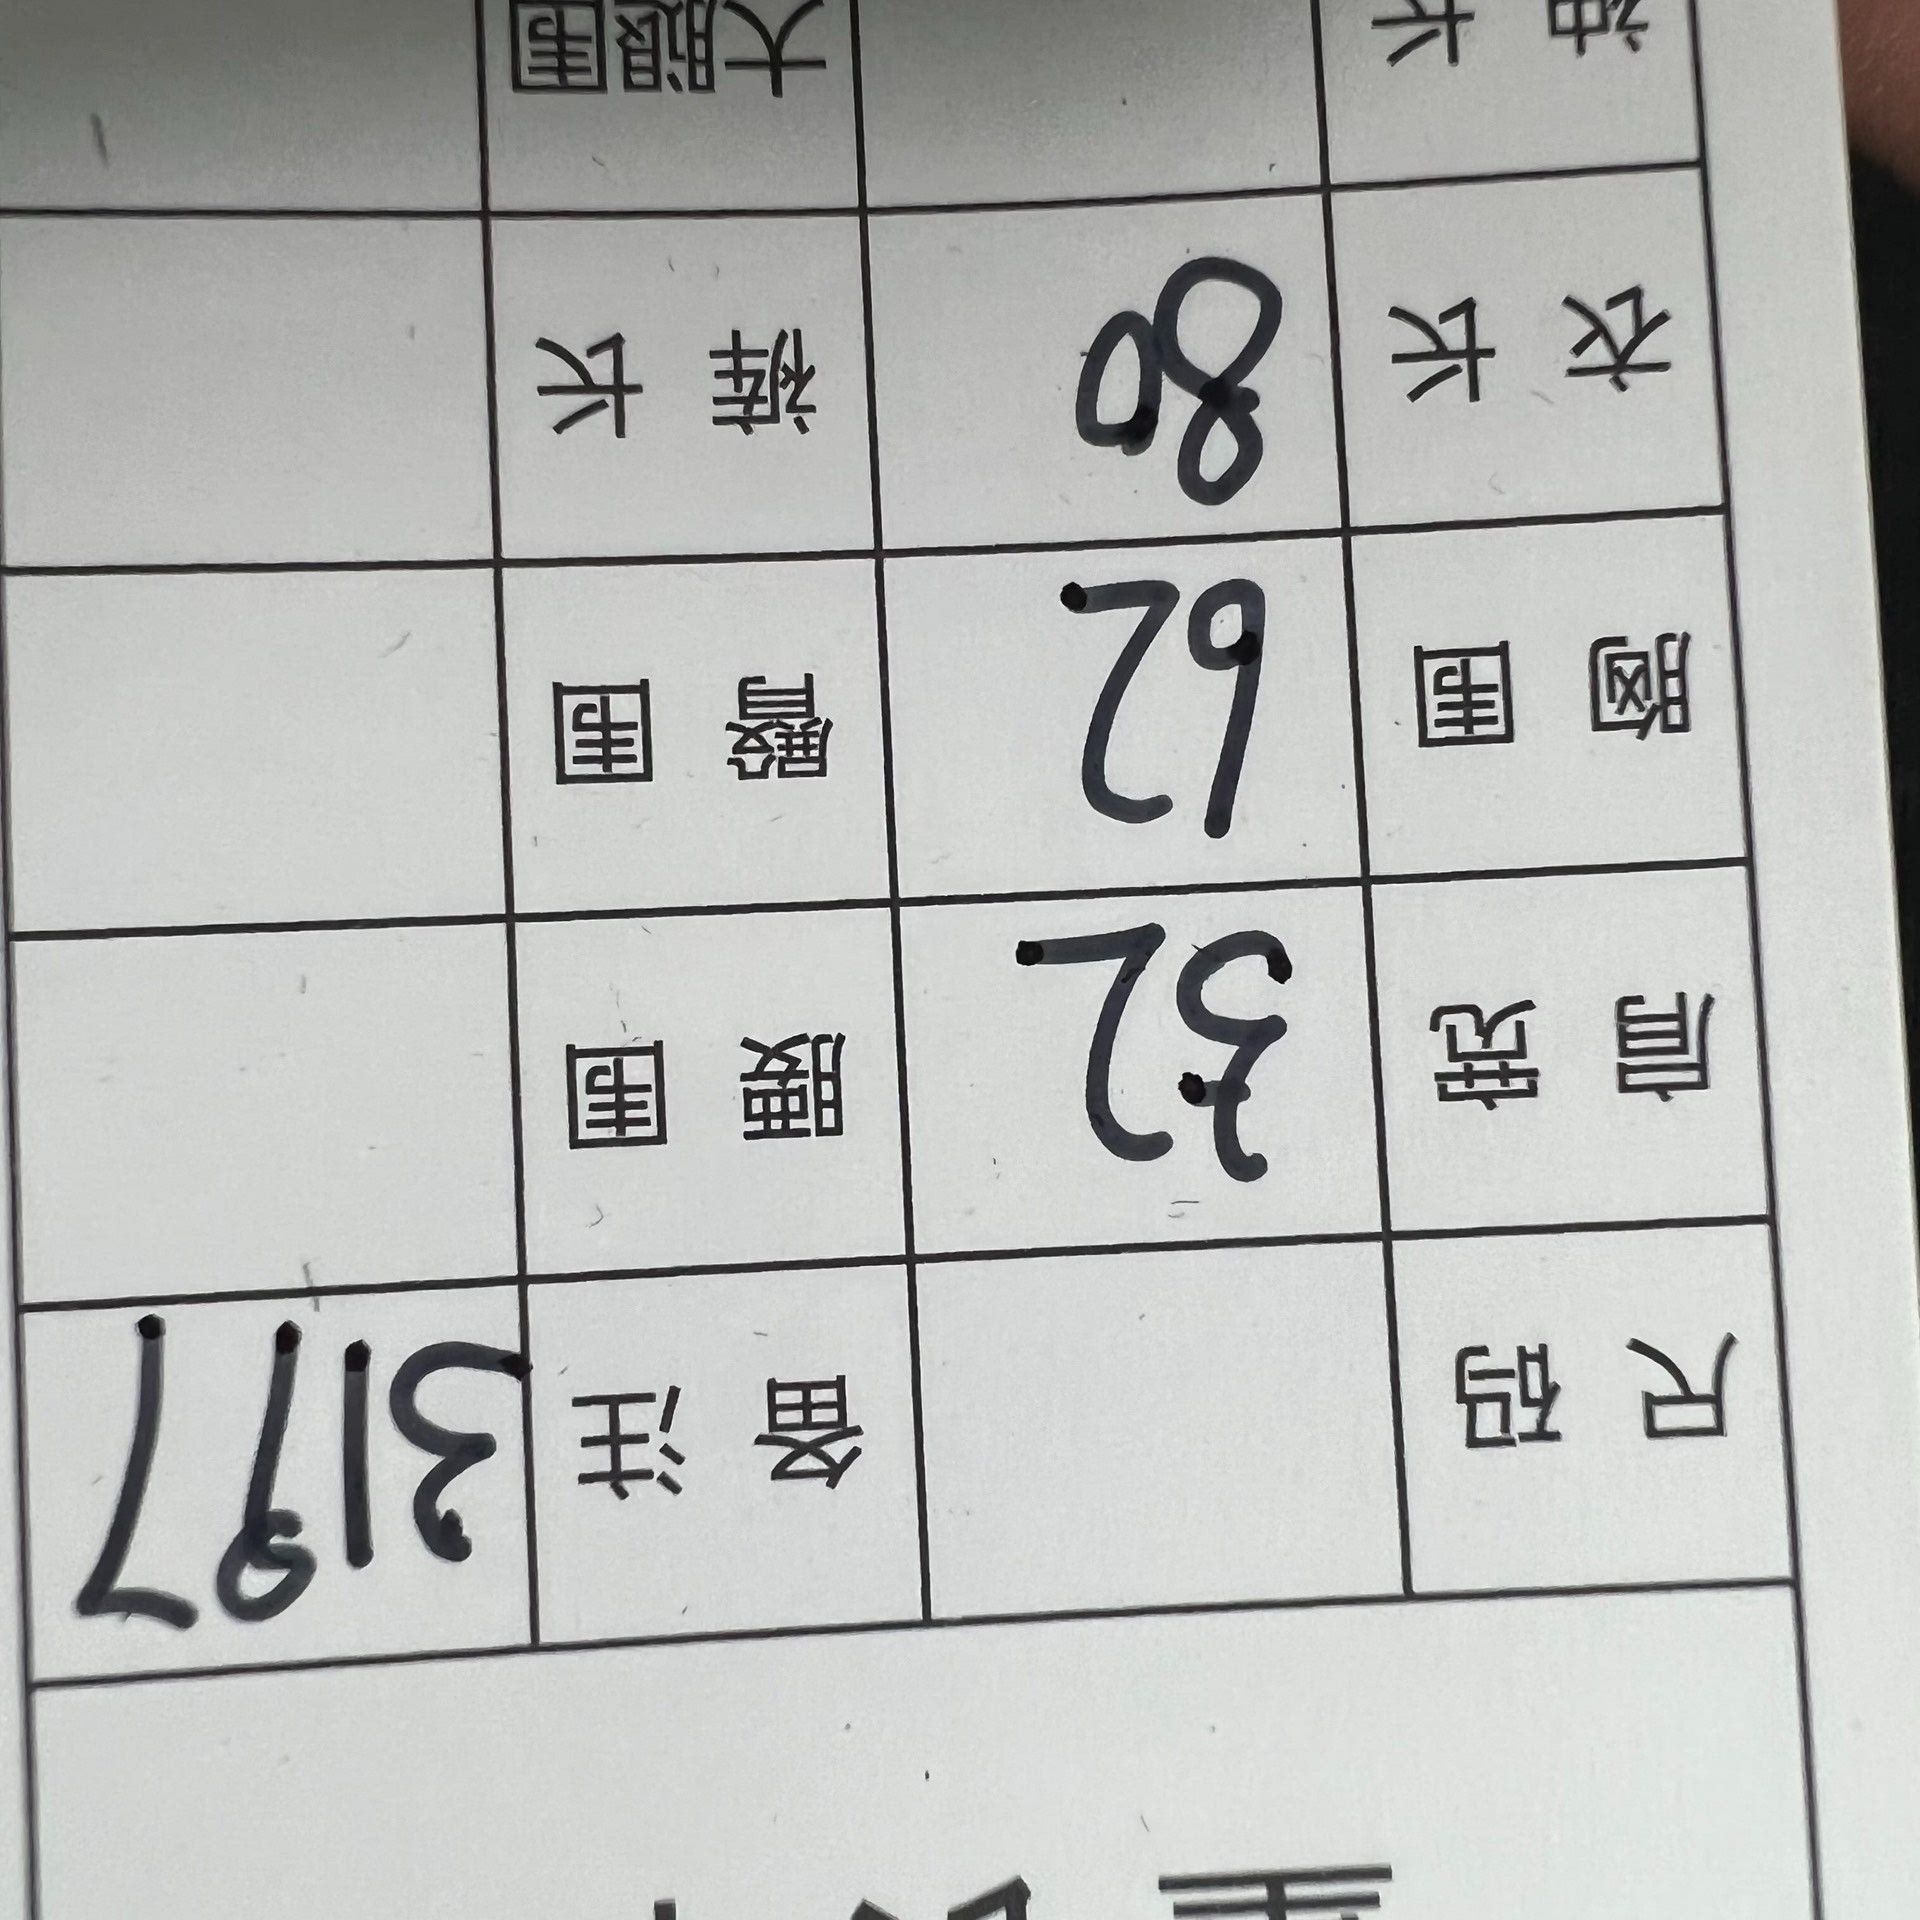 尺码 备注 3197
肩宽 32 腰围
胸围 62 臀围
衣长 80 裤长
袖长 大腿围